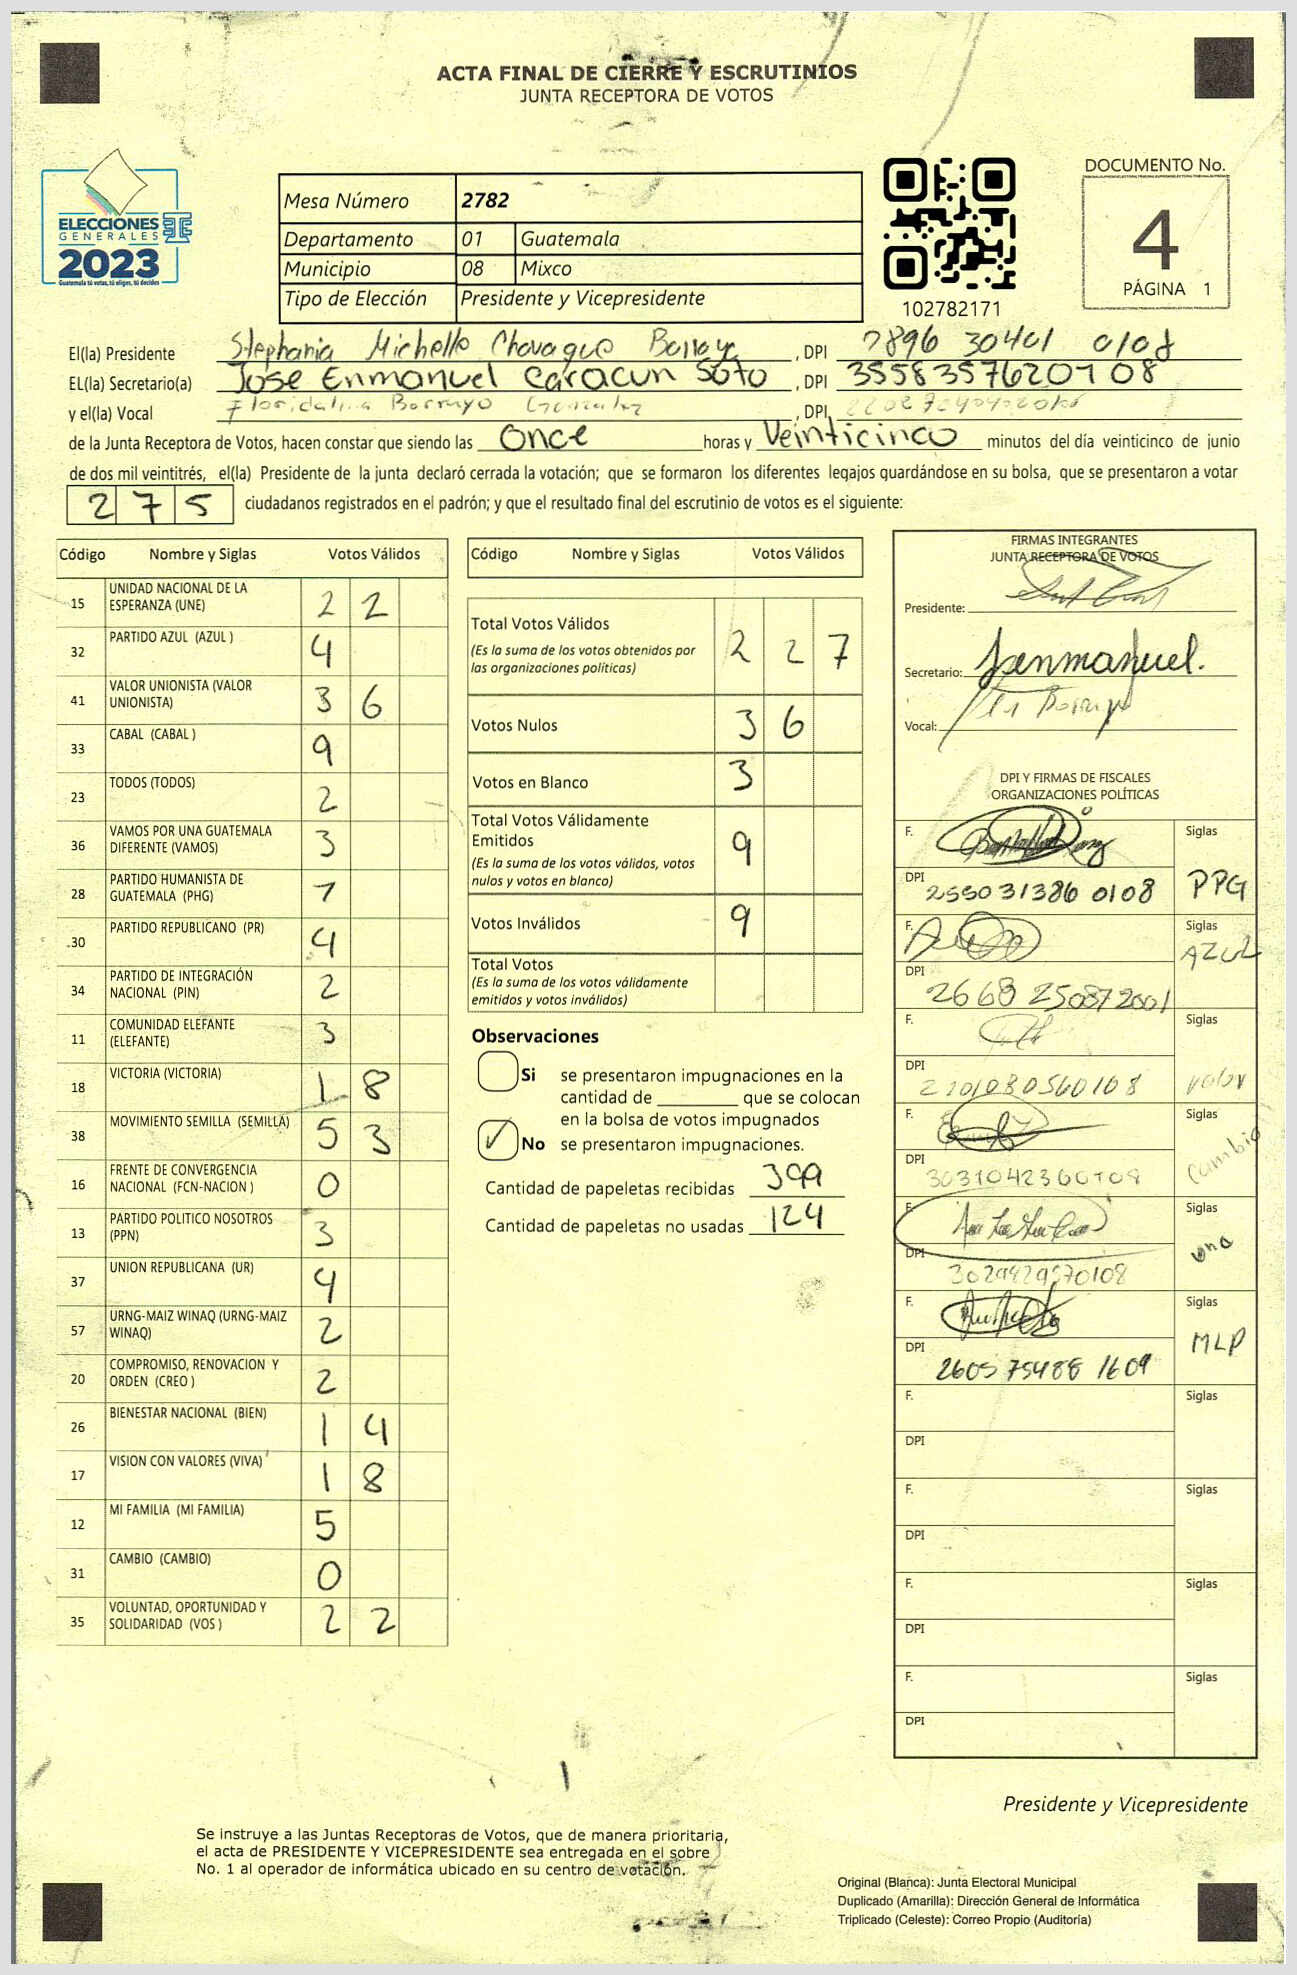 ACTA FINAL DE CIERRE Y ESCRUTINIOS
JUNTA RECEPTORA DE VOTOS
ELECCIONES
GENERALES
2023
Guatemala tú votas, tú eliges, tú decides
Mesa Número 2782
Departamento 01 Guatemala
Municipio 08 Mixco
Tipo de Elección Presidente y Vicepresidente
102782171
DOCUMENTO No.
4
PÁGINA 1
El(la) Presidente Stephania Michelle Chavaque Borrayo, DPI 2896 30401 0108
EL(la) Secretario(a) Jose Enmanuel Caracun Soto, DPI 3558357620108
y el(la) Vocal Floridalma Borrayo Gonzalez, DPI
de la Junta Receptora de Votos, hacen constar que siendo las Once horas y Veinticinco minutos del día veinticinco de junio
de dos mil veintitrés, el(la) Presidente de la junta declaró cerrada la votación; que se formaron los diferentes legajos guardándose en su bolsa, que se presentaron a votar
275 ciudadanos registrados en el padrón; y que el resultado final del escrutinio de votos es el siguiente:
Código Nombre y Siglas Votos Válidos
15 UNIDAD NACIONAL DE LA ESPERANZA (UNE) 2 2
32 PARTIDO AZUL (AZUL ) 4
41 VALOR UNIONISTA (VALOR UNIONISTA) 3 6
33 CABAL (CABAL ) 9
23 TODOS (TODOS) 2
36 VAMOS POR UNA GUATEMALA DIFERENTE (VAMOS) 3
28 PARTIDO HUMANISTA DE GUATEMALA (PHG) 1
30 PARTIDO REPUBLICANO (PR) 4
34 PARTIDO DE INTEGRACIÓN NACIONAL (PIN) 2
11 COMUNIDAD ELEFANTE (ELEFANTE) 3
18 VICTORIA (VICTORIA) 1 8
38 MOVIMIENTO SEMILLA (SEMILLA) 5 3
16 FRENTE DE CONVERGENCIA NACIONAL (FCN-NACION ) 0
13 PARTIDO POLITICO NOSOTROS (PPN) 3
37 UNION REPUBLICANA (UR) 4
57 URNG-MAIZ WINAQ (URNG-MAIZ WINAQ) 2
20 COMPROMISO, RENOVACION Y ORDEN (CREO ) 2
26 BIENESTAR NACIONAL (BIEN) 1 4
17 VISION CON VALORES (VIVA) 1 8
12 MI FAMILIA (MI FAMILIA) 5
31 CAMBIO (CAMBIO) 0
35 VOLUNTAD, OPORTUNIDAD Y SOLIDARIDAD (VOS ) 2 2
Código Nombre y Siglas Votos Válidos
Total Votos Válidos 2 2 7
(Es la suma de los votos obtenidos por
las organizaciones políticas)
Votos Nulos 3 6
Votos en Blanco 3
Total Votos Válidamente
Emitidos 9
(Es la suma de los votos válidos, votos
nulos y votos en blanco)
Votos Inválidos 9
Total Votos
(Es la suma de los votos válidamente
emitidos y votos inválidos)
Observaciones
Si se presentaron impugnaciones en la
cantidad de ________ que se colocan
en la bolsa de votos impugnados
✓ No se presentaron impugnaciones.
Cantidad de papeletas recibidas 399
Cantidad de papeletas no usadas 124
FIRMAS INTEGRANTES
JUNTA RECEPTORA DE VOTOS
Presidente:
Secretario: Jenmanuel.
Vocal: Borrayo
DPI Y FIRMAS DE FISCALES
ORGANIZACIONES POLÍTICAS
F. Siglas
DPI 255031386 0108 PPG
F. Siglas
DPI 2668 250872001 AZUL
F. Siglas
DPI 2101080560108 valor
F. Siglas
DPI 3031042360108 cambio
F. Siglas
DPI 3029829570108 une
F. Siglas
DPI 2605 75488 1609 MLP
F. Siglas
DPI
F. Siglas
DPI
F. Siglas
DPI
F. Siglas
DPI
Presidente y Vicepresidente
Se instruye a las Juntas Receptoras de Votos, que de manera prioritaria,
el acta de PRESIDENTE Y VICEPRESIDENTE sea entregada en el sobre
No. 1 al operador de informática ubicado en su centro de votación.
Original (Blanca): Junta Electoral Municipal
Duplicado (Amarilla): Dirección General de Informática
Triplicado (Celeste): Correo Propio (Auditoría)